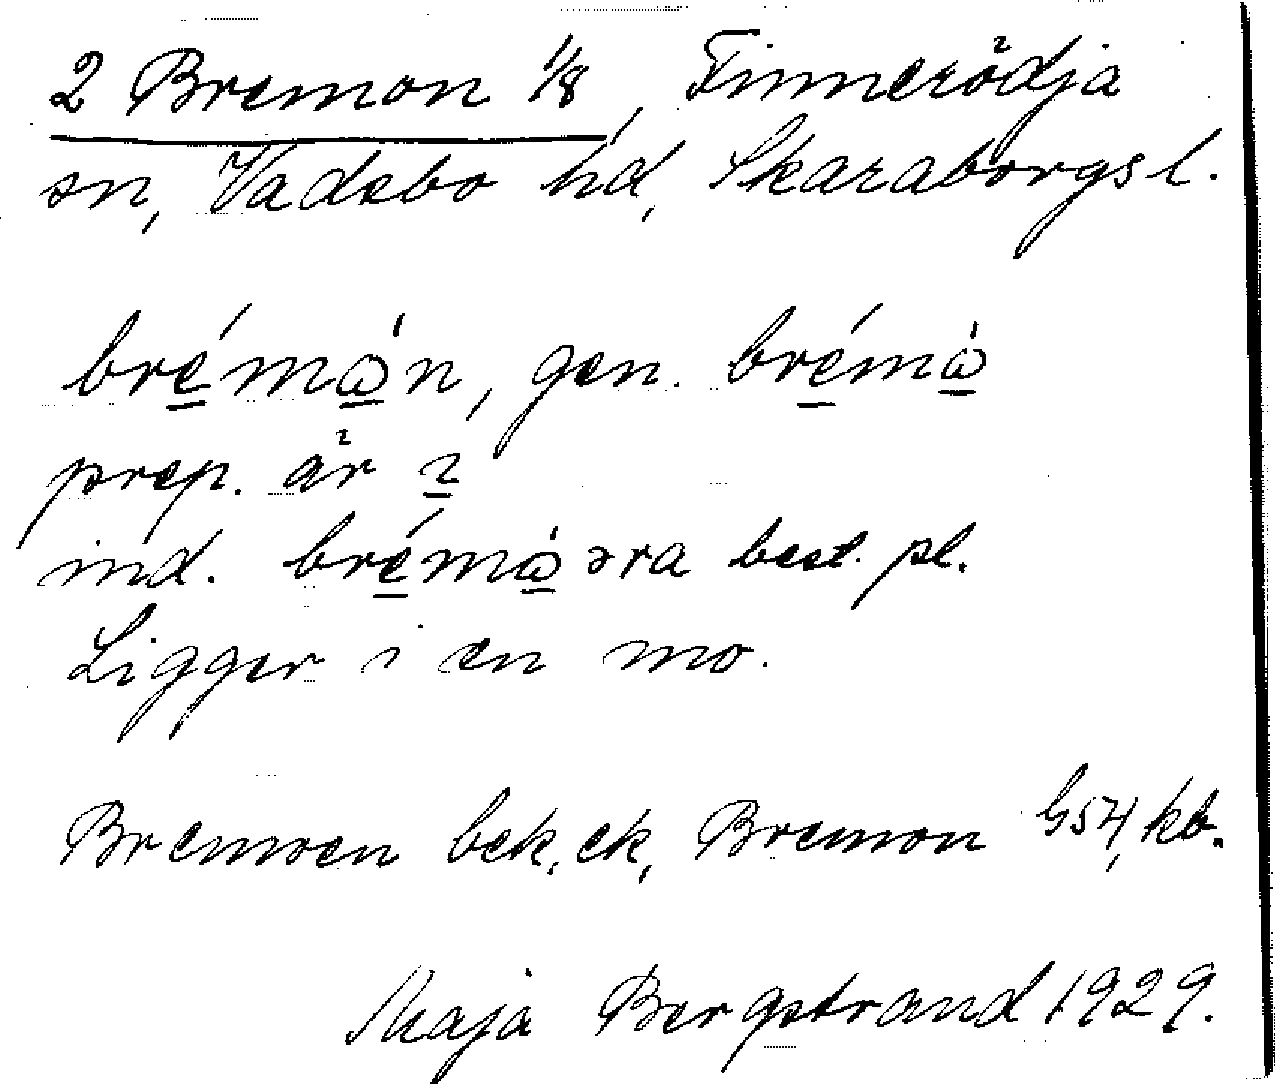 2 Bremon 1/8, Finnerödja
sn, Vadsbo hd, Skaraborgs l.
brémὼn, gen. brémὼ
prep. är i
ind. brémὼəra best. pl.
Ligger i en mo.
Bremoen bek, ek, Bremon G54, kb.
Maja Bergstrand 1929.